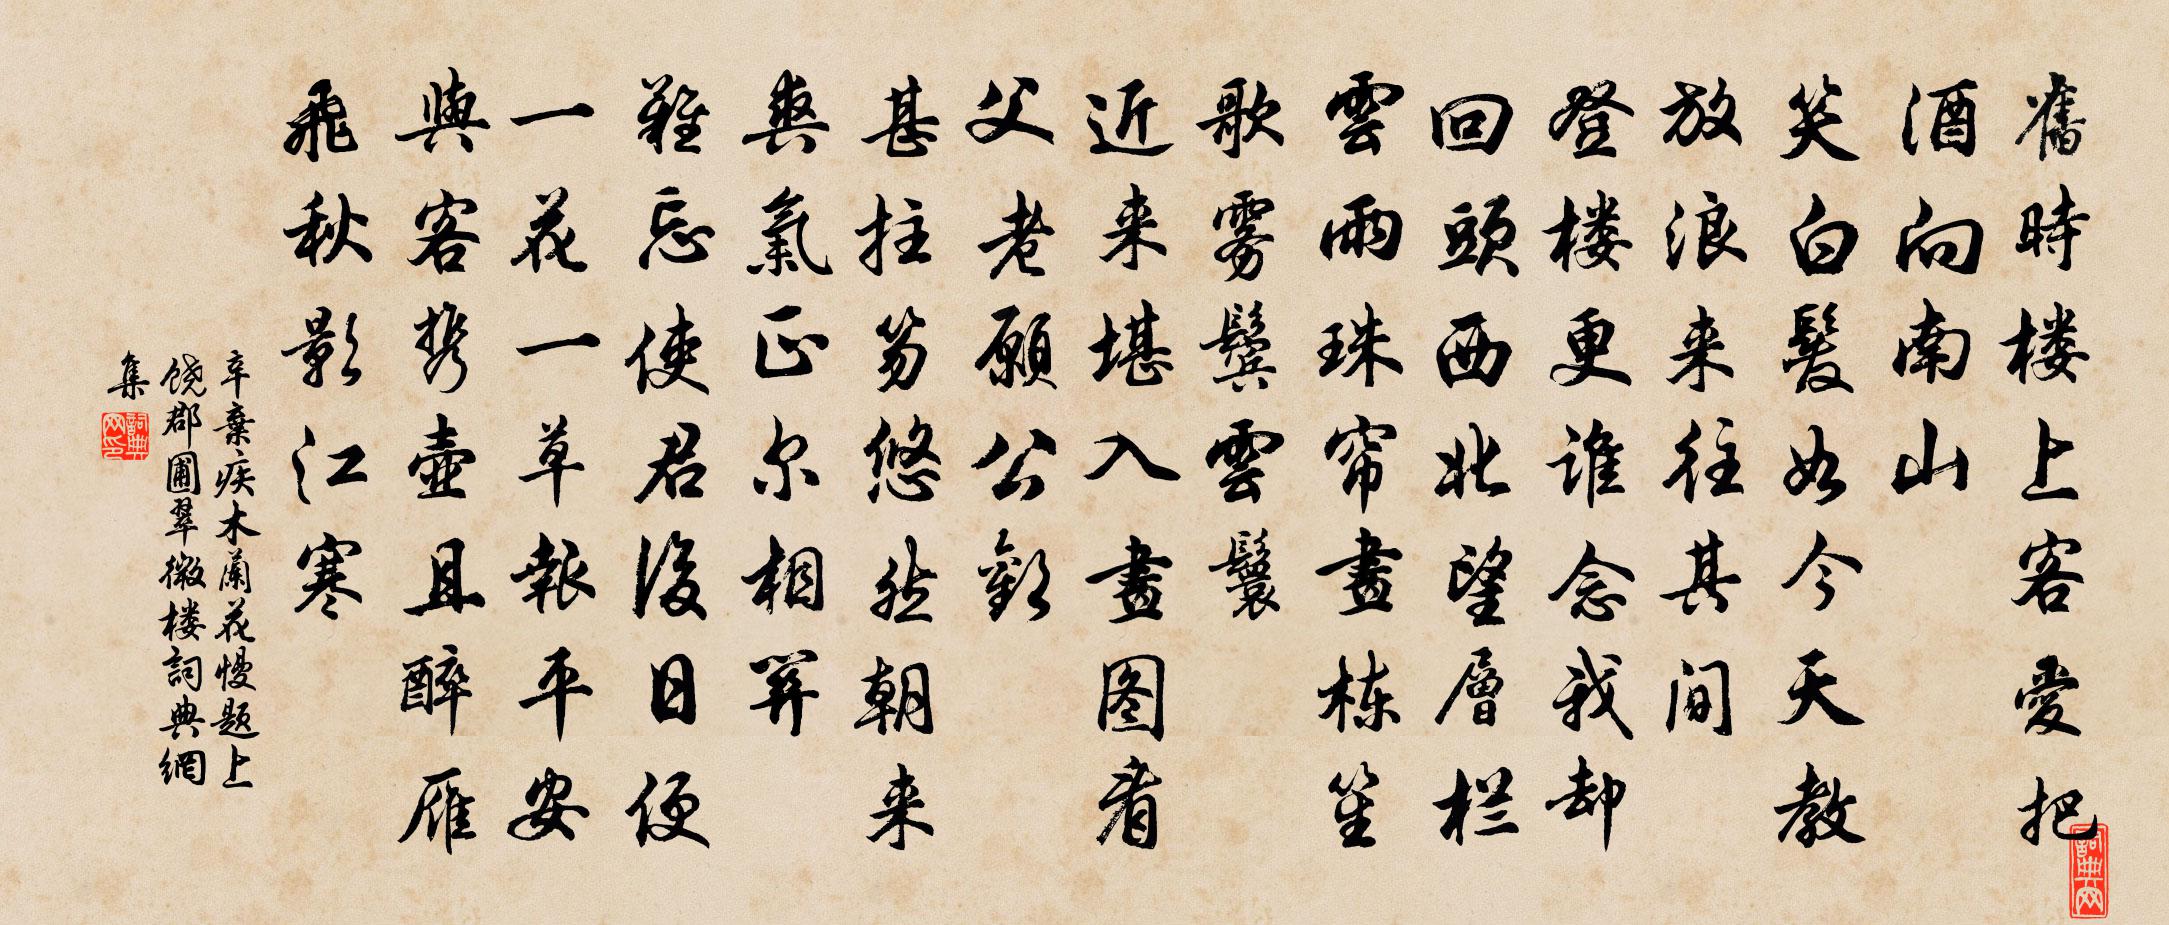 舊時楼上客愛把
酒向南山
笑白髮如今天教
放浪来往其間
登楼更谁念我却
回頭西北望層栏
雲雨珠帘畫栋笙
歌雾鬓雲鬟
近来堪入畫图看
父老願公歡
甚拄笏悠然朝来
爽氣正尔相關
難忘使君後日便
一花一草報平安
與客携壶且醉雁
飛秋影江寒
辛棄疾木蘭花慢题上
饶郡圃翠微楼詞典網
集
詞典网印
詞典网